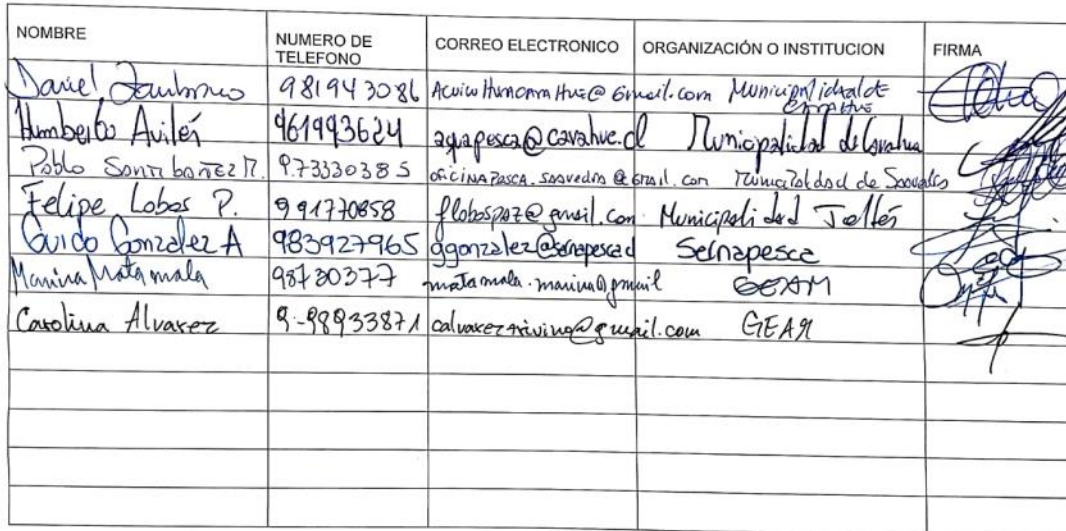 NOMBRE NUMERO DE TELEFONO CORREO ELECTRONICO ORGANIZACIÓN O INSTITUCION FIRMA
Daniel 981943086 Municipalidad de
Humberto Avilés 961993624 aquapesca@carahue.cl Municipalidad de Carahue
Pablo Santibañez R. 973330385 oficinapesca.saavedra@gmail.com Municipalidad de Saavedra
Felipe Lobos P. 991770858 flobospaz@gmail.com Municipalidad Toltén
Guido Gonzalez A 983927965 ggonzalez@sernapesca.cl Sernapesca
Marina Matamala 98730377 matamala.marina@gmail GEAM
Carolina Alvarez 9-98933871 GEAM